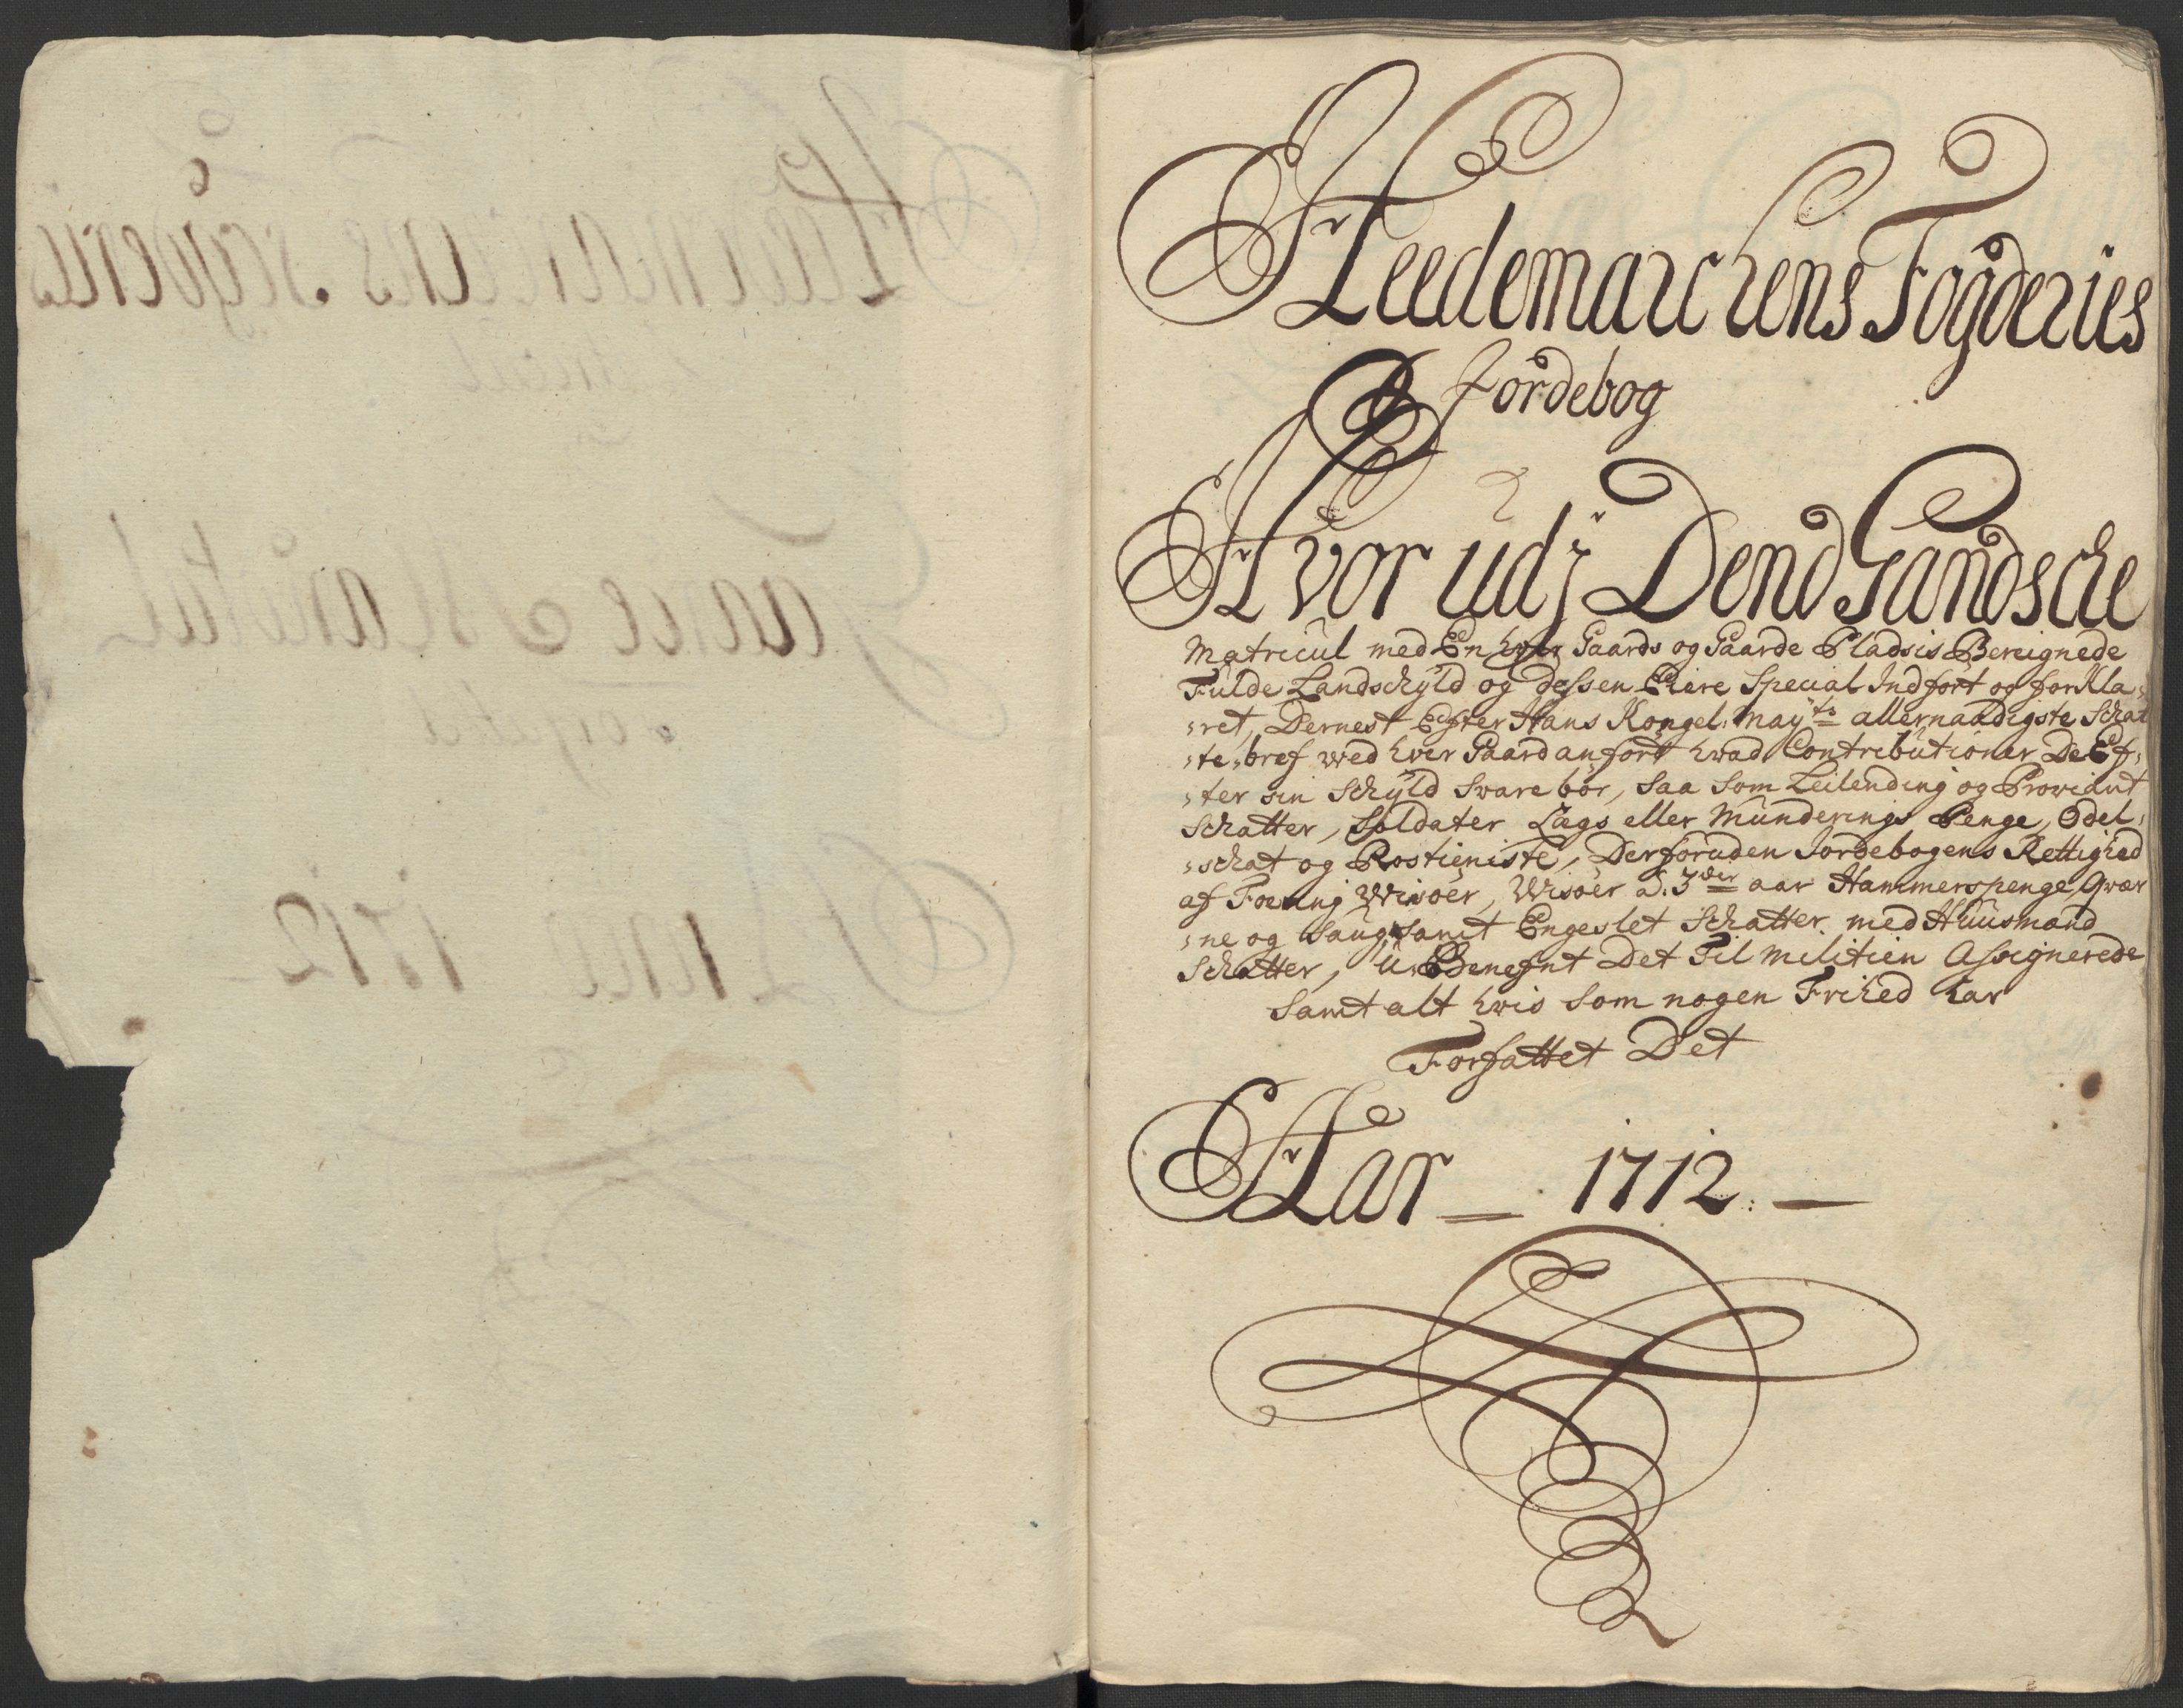 Heedemarchens Fogderies
Jordebog
Hvor udj Dend Gandsche
Matricul med En hver Gaards og Gaarde Pladsis Bereignede
Fulde Landschyld og dessen Eiere Special Indført og forkla-
-ret, Dernest Efter Hans Kongel: Mayts allernaadigste Schat
-te-bref wed hver Gaard anført hwad Contributioner De Ef-
-ter sin Schyld sware bör, saa som Leilending og Prowiant
Schatter, Soldater Lægs eller Munderings Penge, Odel-
-schat og Rostieniste, Derforuden Jordebogens Rettighed
af Foering Wisöer, Wisöer a. 3der aar Hammerspenge, Qwer
-ne og Saug, samt Engeslet Schatter med Huusmand
Schatter, U-Benefnt Det Til Militien Assignerede
Samt alt hwis som nogen Frihed har
Forfattet Det
Aar 1712.